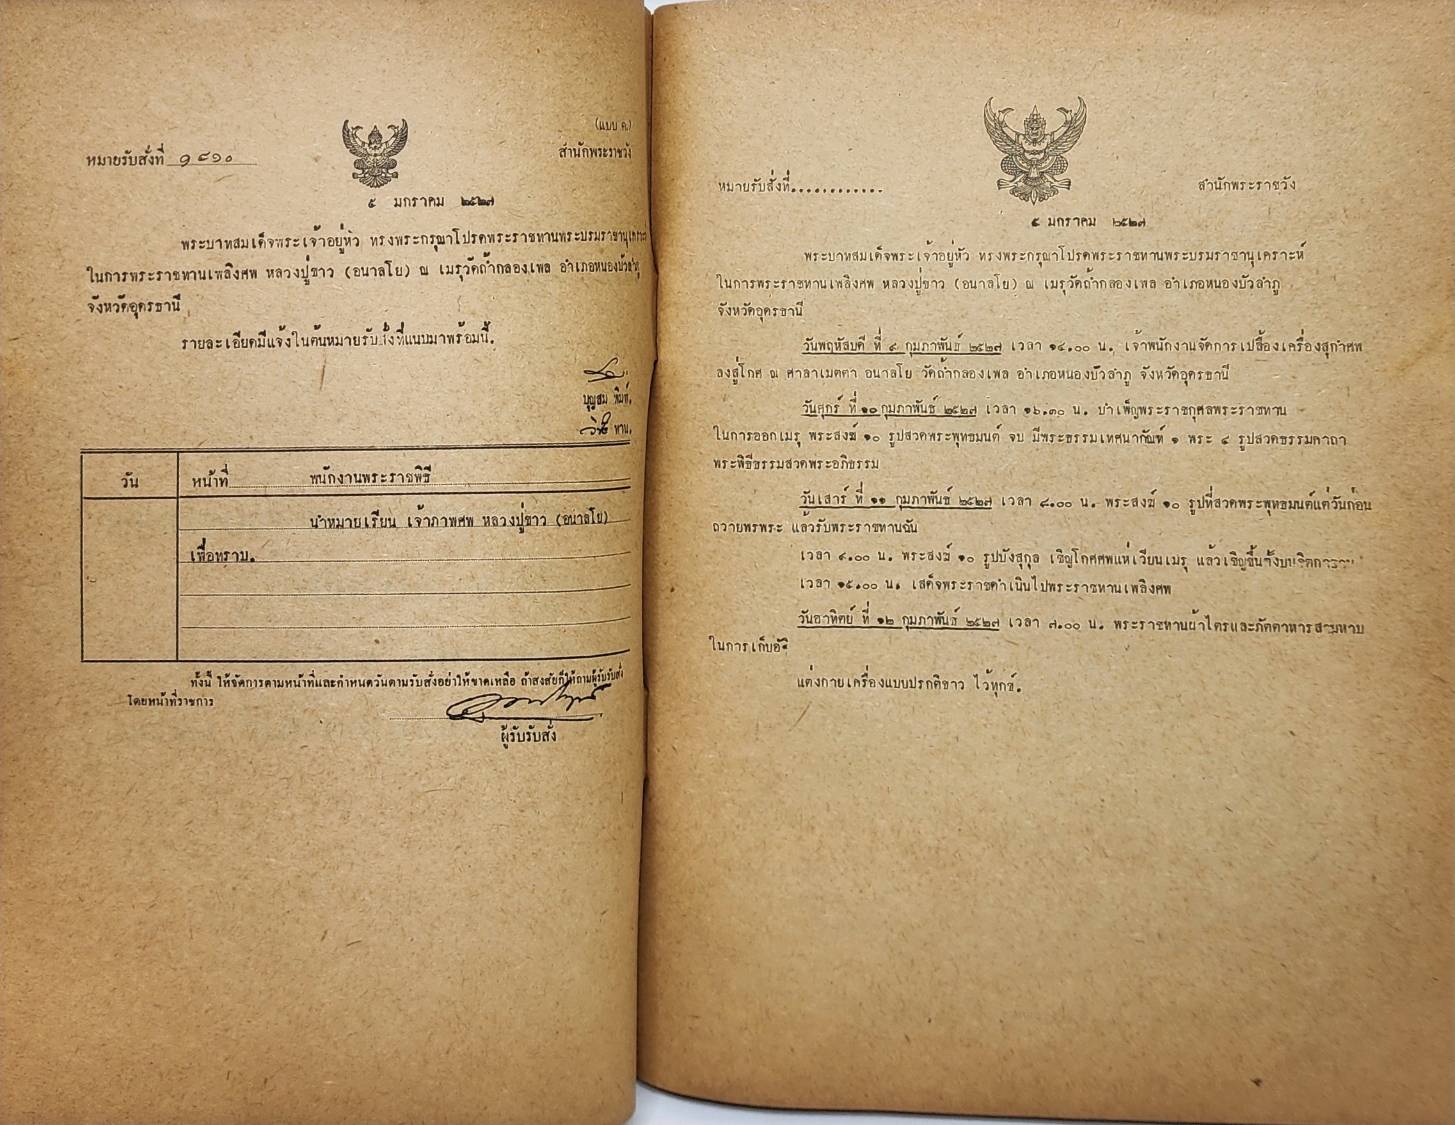 (แบบ ค.)
หมายรับสั่งที่ ๑๘๑๐
สำนักพระราชวัง
๕ มกราคม ๒๕๒๗
พระบาทสมเด็จพระเจ้าอยู่หัว ทรงพระกรุณาโปรดพระราชทานพระบรมราชานุเคราะห์
ในการพระราชทานเพลิงศพ หลวงปู่ขาว (อนาลโย) ณ เมรุวัดถ้ำกลองเพล อำเภอหนองบัวลำภู
จังหวัดอุดรธานี
รายละเอียดมีแจ้งในต้นหมายรับสั่งที่แนบมาพร้อมนี้.
บุญสม พิมพ์.
ทาน.
วัน หน้าที่ พนักงานพระราชพิธี
นำหมายเรียน เจ้าภาพศพ หลวงปู่ขาว (อนาลโย)
เพื่อทราบ.
ทั้งนี้ ให้จัดการตามหน้าที่และกำหนดวันตามรับสั่งอย่าให้ขาดเหลือ ถ้าสงสัยก็ให้ถามผู้รับรับสั่ง
โดยหน้าที่ราชการ
ผู้รับรับสั่ง
หมายรับสั่งที่............
สำนักพระราชวัง
๕ มกราคม ๒๕๒๗
พระบาทสมเด็จพระเจ้าอยู่หัว ทรงพระกรุณาโปรดพระราชทานพระบรมราชานุเคราะห์
ในการพระราชทานเพลิงศพ หลวงปู่ขาว (อนาลโย) ณ เมรุวัดถ้ำกลองเพล อำเภอหนองบัวลำภู
จังหวัดอุดรธานี
วันพฤหัสบดี ที่ ๙ กุมภาพันธ์ ๒๕๒๗ เวลา ๑๔.๐๐ น. เจ้าพนักงานจัดการเปลื้องเครื่องสุกำศพ
ลงสู่โกศ ณ ศาลาเมตตา อนาลโย วัดถ้ำกลองเพล อำเภอหนองบัวลำภู จังหวัดอุดรธานี
วันศุกร์ ที่ ๑๐ กุมภาพันธ์ ๒๕๒๗ เวลา ๑๖.๓๐ น. บำเพ็ญพระราชกุศลพระราชทาน
ในการออกเมรุ พระสงฆ์ ๑๐ รูปสวดพระพุทธมนต์ จบ มีพระธรรมเทศนากัณฑ์ ๑ พระ ๔ รูปสวดธรรมคาถา
พระพิธีธรรมสวดพระอภิธรรม
วันเสาร์ ที่ ๑๑ กุมภาพันธ์ ๒๕๒๗ เวลา ๘.๐๐ น. พระสงฆ์ ๑๐ รูปที่สวดพระพุทธมนต์แต่วันก่อน
ถวายพรพระ แล้วรับพระราชทานฉัน
เวลา ๙.๐๐ น. พระสงฆ์ ๑๐ รูปบังสุกุล เชิญโกศศพแห่เวียนเมรุ แล้วเชิญขึ้นตั้งบนจิตกาธาน
เวลา ๑๕.๐๐ น. เสด็จพระราชดำเนินไปพระราชทานเพลิงศพ
วันอาทิตย์ ที่ ๑๒ กุมภาพันธ์ ๒๕๒๗ เวลา ๗.๐๐ น. พระราชทานผ้าไตรและภัตตาหารสามหาบ
ในการเก็บอัฐิ
แต่งกายเครื่องแบบปรกติขาว ไว้ทุกข์.